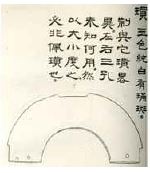 璜 三色純白有璊斑
制與它璜畧
異左右三孔
未知何用然
以大小度之
必非佩璜也